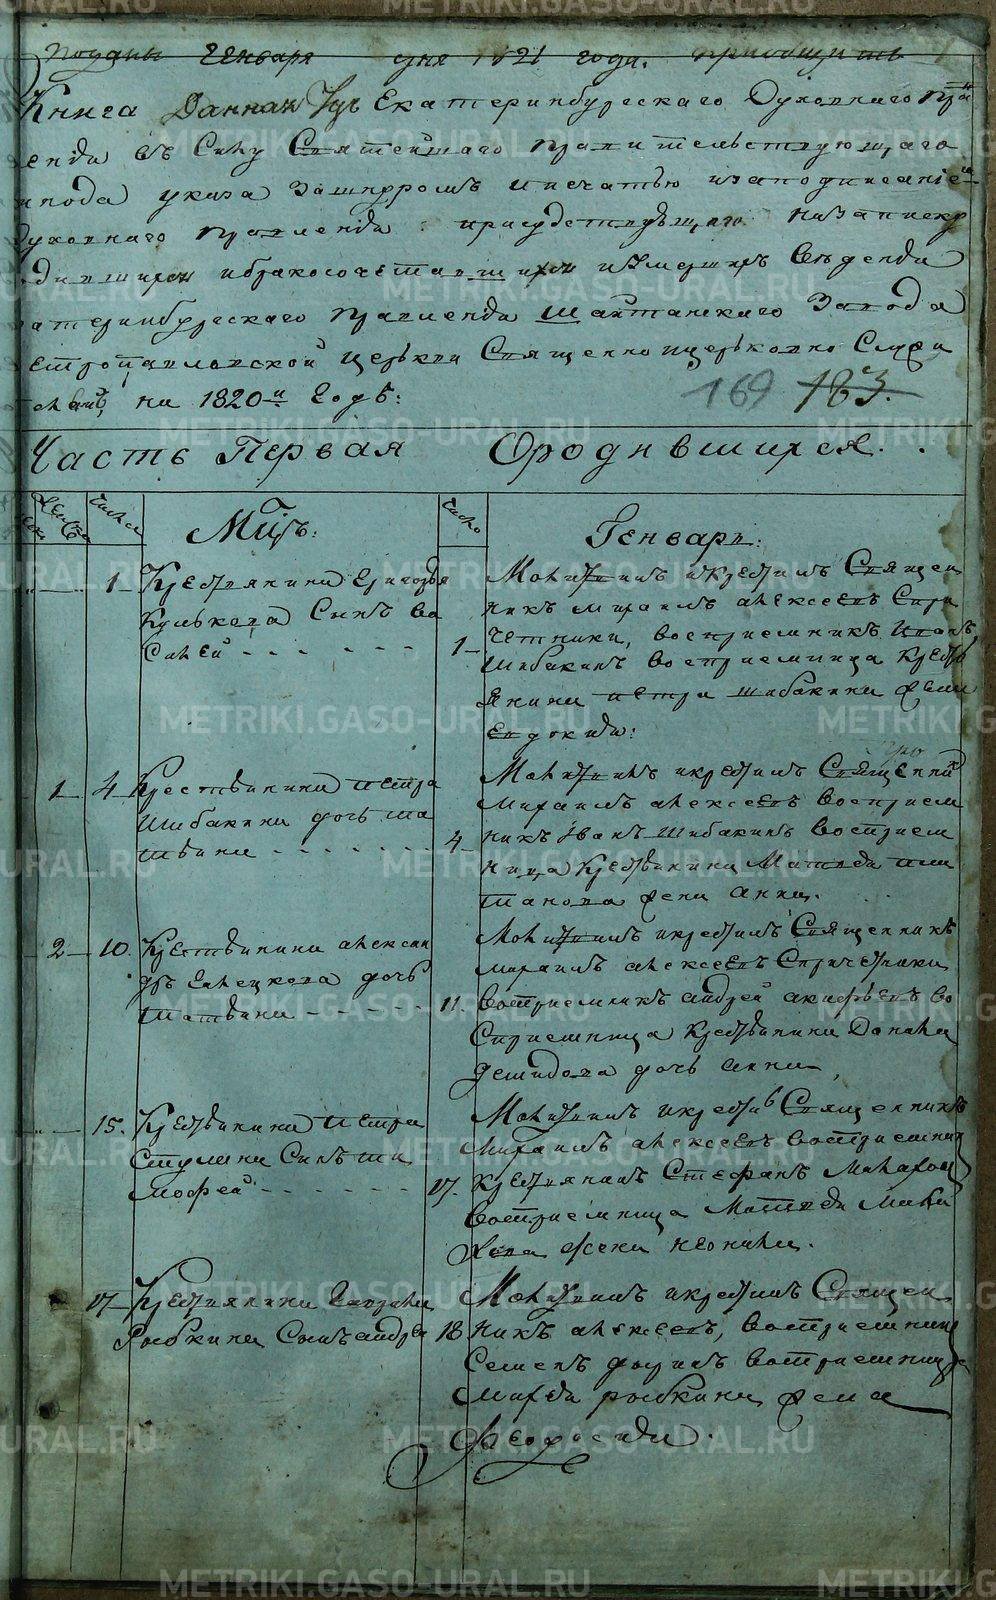 Поданы Генваря дня 1821 года. приобщить
Книга Данная Изъ Екатеринбургскаго Духовнаго Пра
ленія въ Силу Святейшаго правительствующаго
инода указа Зашнуромъ ипечатью изаподписаніе
Духовнаго правленія присудствующаго Назаписку
дившихся ибракосочетавшихся иумершихъ Вѣденія
атеринбургскаго правленія Шайтанскаго Завода
етропавловской Церькви Священно ицерьковно Служи
на 1820й Годъ:
169 183.
Часть Первая Ородившихся.
Числа Число
Мцъ: Генварь:
1 Крестьянина Григорья
Кулькова Сынъ Ва
Силей
1 Молитвилъ икрестилъ Священ
никъ михаилъ алексеевъ Спри
четники, восприемникъ Иванъ
Шибакинъ восприемница Крестъ
янина петра шибакина жена
Евдокия:
1 4 Крестьянина петра
Шибакина дочь та
тьяна
4 Молитвилъ икрестилъ Священни
Михаилъ алексеевъ восприем
никъ Иванъ Шибакинъ восприем
ница Крестьянина Матвея пли
танова жена анна.
2 10. Крестьянина алексан
дръ Елецкова дочь
татьяна
11. Молитвилъ икрестилъ Священникъ
михаилъ алексеевъ Спричетники
восприемникъ андрей акифьевъ во
Сприемница Крестьянина Данилы
демидова дочь анна
15. Крестьянина петра
Ступина Сынъ ти
мофей
17. Молитвилъ икрести Священникъ
Михаилъ алексеевъ восприемник
крестьянинъ Стефанъ Макаров
восприемница Матвея
жена неонила.
17 Крестьянина Гаврилы
Рыбкина Сынъ андрей
18 Молитвилъ икрестилъ Священ
никъ алексеевъ, восприемник
Семенъ восприемница
рыбкина жена
Феодосия.
METRIKI.GASO-URAL.RU